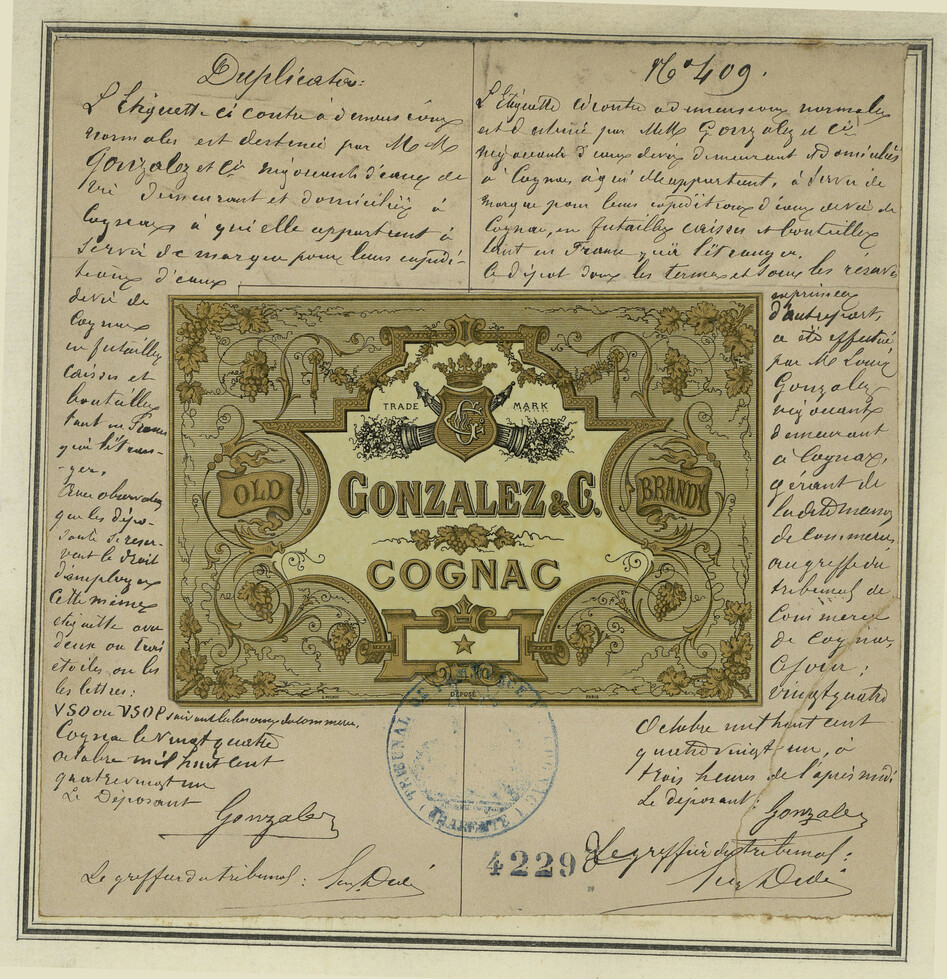 Duplicata:
L'Etiquette ci contre à dimensions
normales est destinée par MM
Gonzalez et Cie négociants d'eaux de
vie demeurant et domiciliés à
Cognac à qui elle appartient à
servir de marque pour leurs expédi-
tions d'eaux
de vie de
Cognac
en futailles
caisses et
bouteilles
tant en France
qu'à l'étran-
-ger.
Avec observation
que les dépo-
sants se réser-
vent le droit
d'employer
cette même
étiquette avec
deux ou trois
étoiles, ou les
les lettres:
VSO ou VSOP suivant les besoins du commerce.
Cognac le vingt quatre
octobre mil huit cent
quatre vingt un
Le Déposant
Gonzalez
Le greffier du tribunal:
No 409.
L'Etiquette ci contre a dimensions normales
est destinée par MM Gonzalez et Cie
négociants d'eaux de vie demeurant et domiciliés
à Cognac, à qui elle appartient, à servir de
marque pour leurs expéditions d'eaux de vie de
Cognac, en futailles caisses et bouteilles
tant en France qu'à l'étranger.
Le dépot dans les termes et sous les réserves
exprimées
d'autre part,
a été effectué
par M. Louis
Gonzalez
négociant
demeurant
à Cognac,
gérant de
la dite maison
de commerce,
au greffe du
tribunal de
Commerce
de Cognac,
ce jour:
vingt quatre
Octobre mil huit cent
quatre vingt un, à
trois heures de l'après midi
Le déposant:
Gonzalez
Le greffier du tribunal:
TRADE MARK
OLD
GONZALEZ & C.
BRANDY
COGNAC
DÉPOSÉ
PARIS
TRIBUNAL DE COMMERCE
COGNAC (CHARENTE)
4229